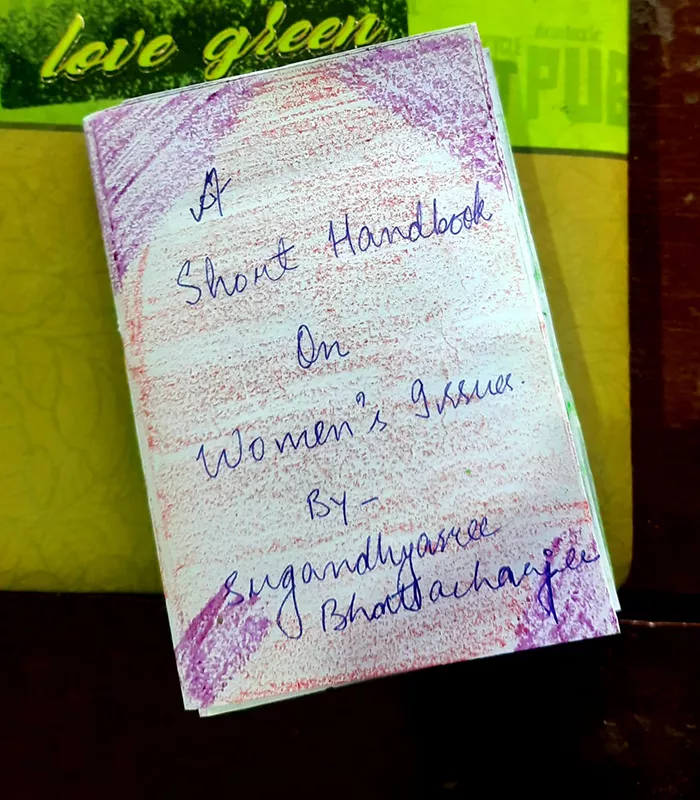 love green
PUB
A
Short Handbook
On
Women's Issues.
By -
Sugandhyasree
Bhattacharjee